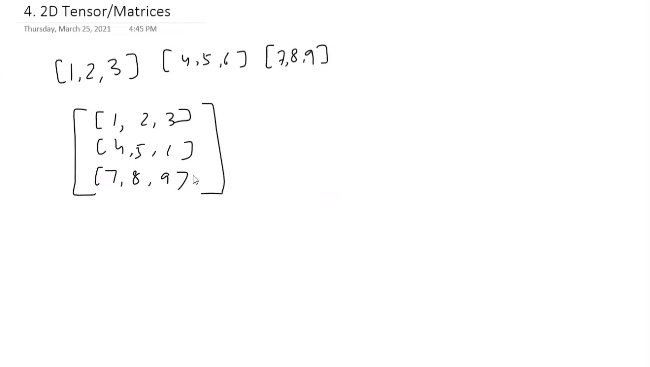 4. 2D Tensor/Matrices
Thursday, March 25, 2021 4:45 PM
[1,2,3] [4,5,6] [7,8,9]
[1, 2,3]
[4,5,6]
[7,8,9]